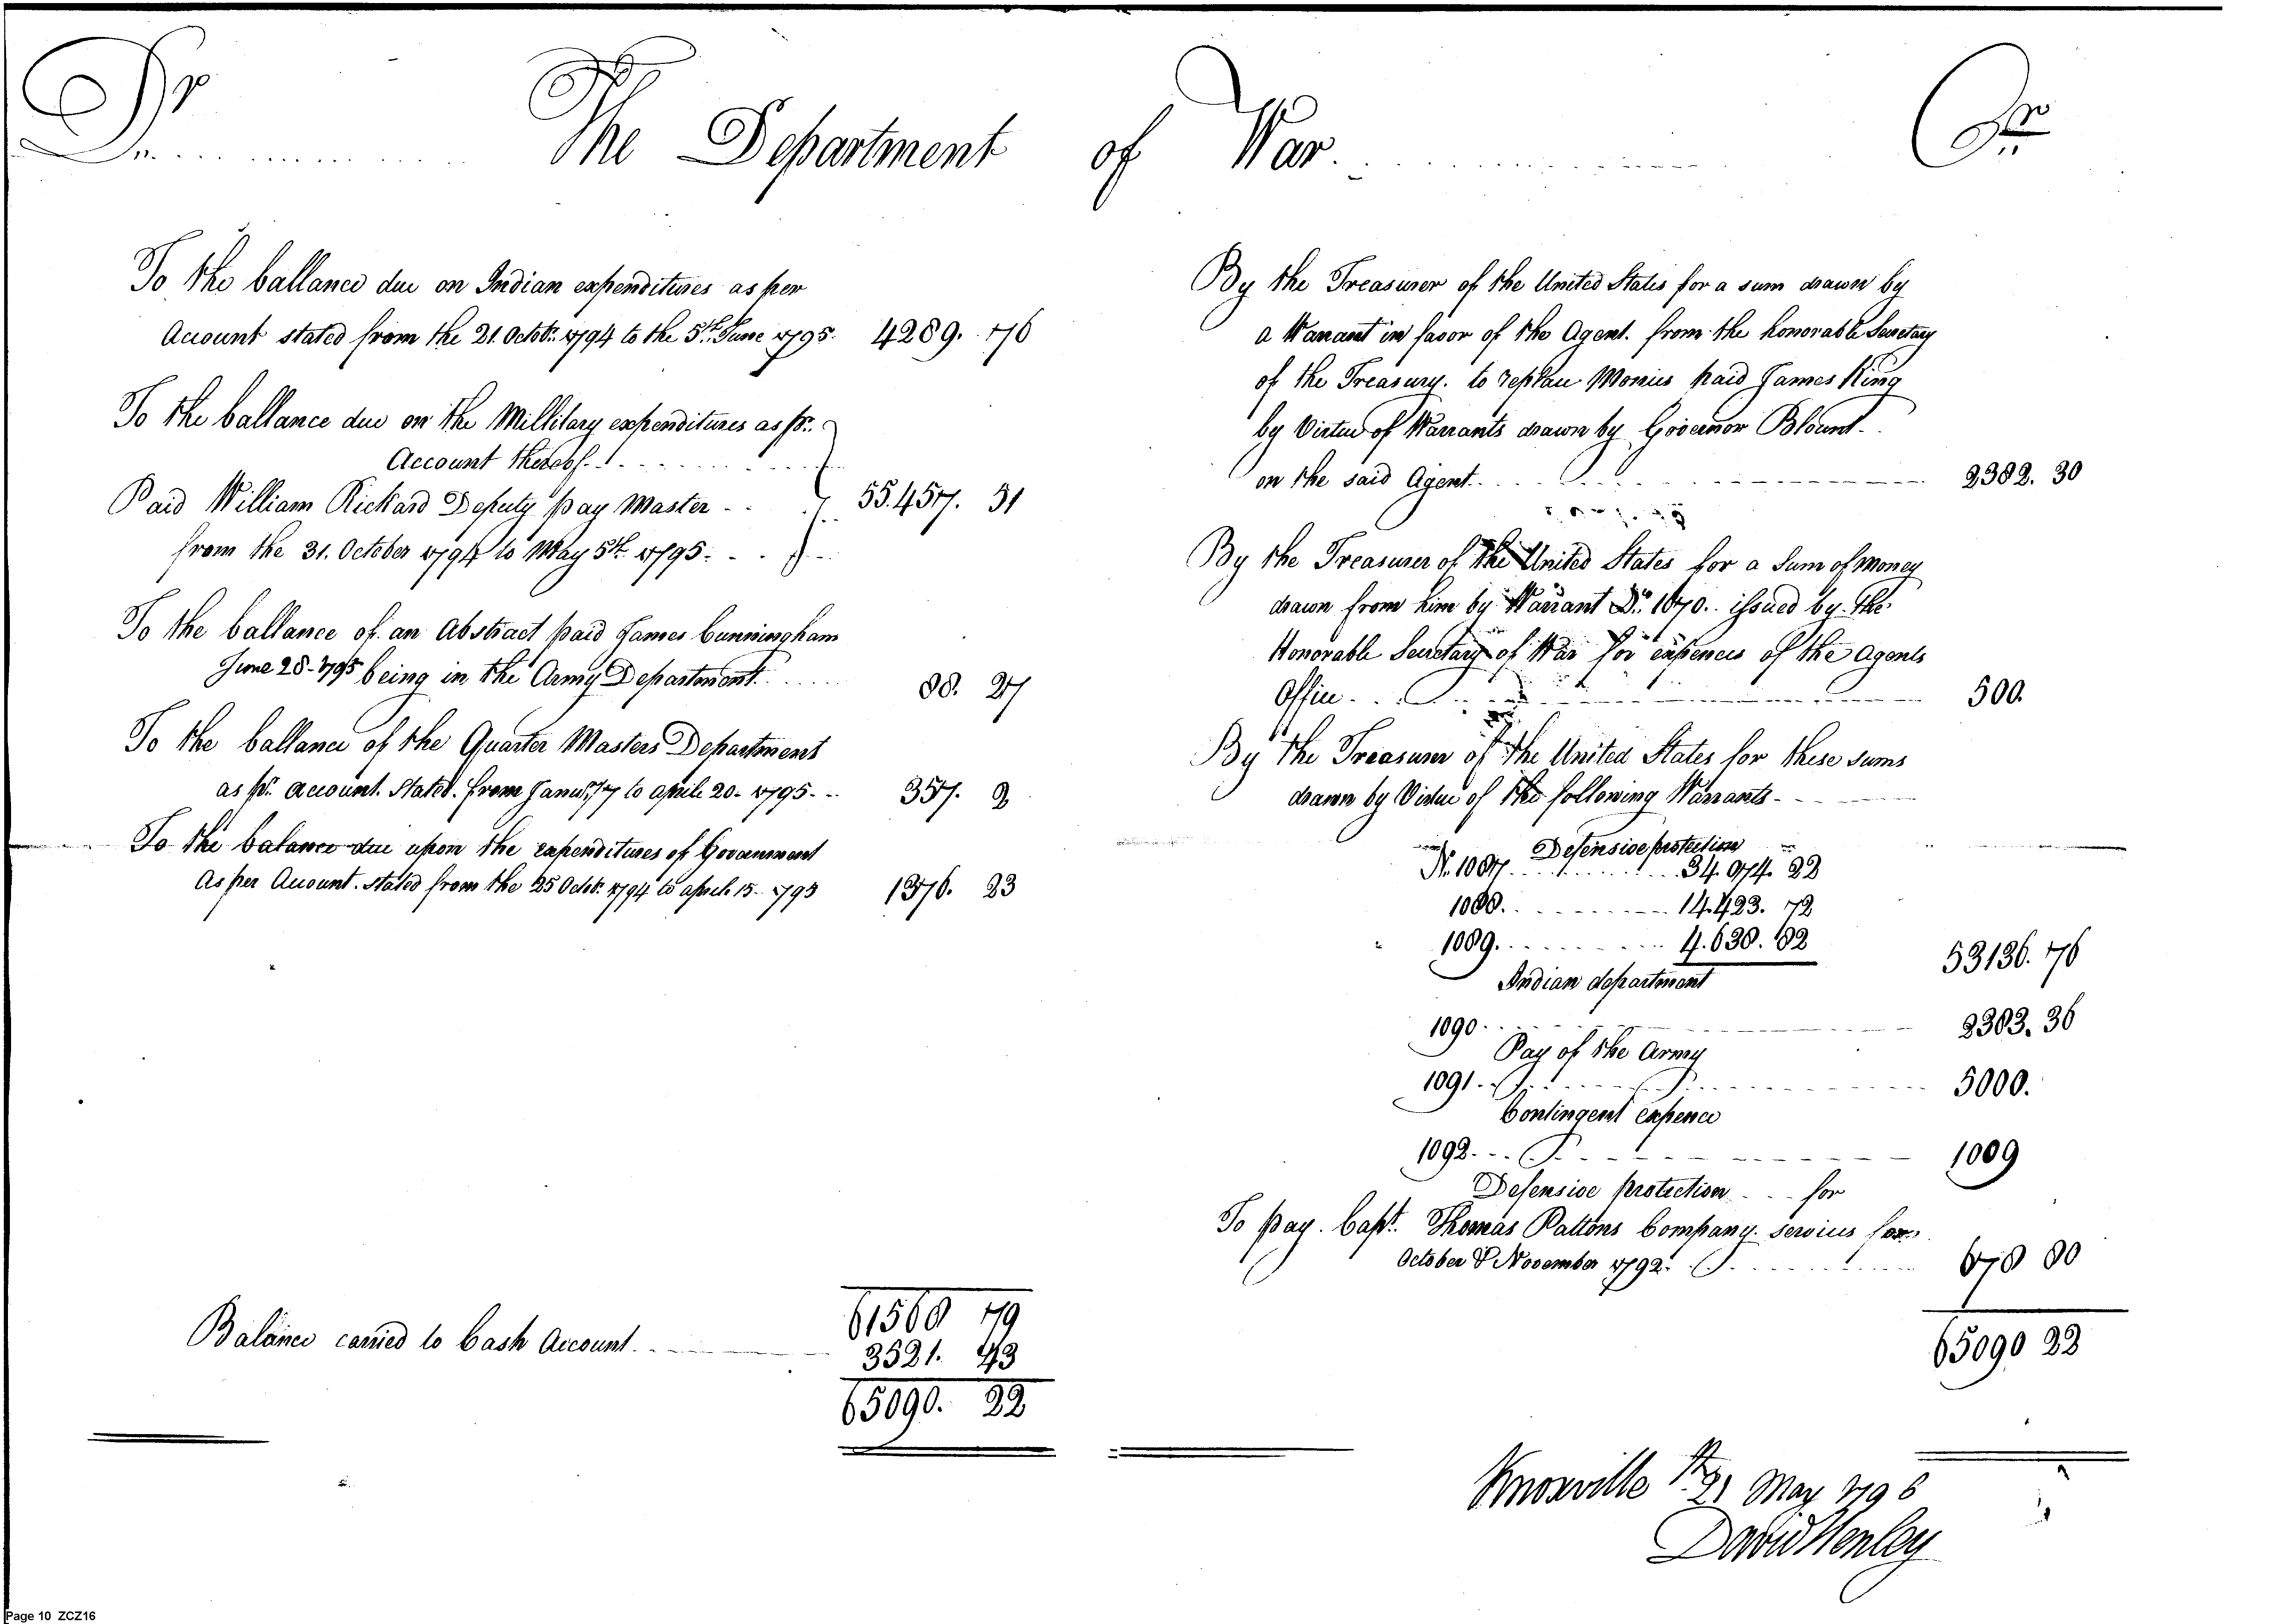 Dr The Department of War Cr
To the ballance due on Indian expenditures as per
Account stated from the 21. Octobr. 1794 to the 5th. June 1795. 4289. 76
To the ballance due on the Millitary expenditures as pr.
Account thereof
Paid William Rickard Deputy pay Master 55.457. 51
from the 31. October 1794 to May 5th. 1795.
To the ballance of an Abstract paid James Cunningham
June 28-1795 being in the Army Department 88. 27
To the ballance of the Quarter Masters Department
as pr. account. Stated. from Janury. 7 to aprile 20- 1795- 357. 2
To the balance due upon the expenditures of Government
As per Account. stated from the 25 Octobr. 1794 to aprile 15- 1795 1376. 23
61568 79
Balance carried to Cash Account. 3521. 43
65090. 22
By the Treasurer of the United States for a sum drawn by
a Warrant in favor of the Agent. from the honorable Secretary
of the Treasury. to replace Monies paid James King
by Virtue of Warrants drawn by Governor Blount.
on the said Agent. 2382. 30
By the Treasurer of the United States for a Sum of money
drawn from him by Warrant No. 1070. issued by the
Honorable Secretary of War for expences of the Agents
Office. 500.
By the Treasurer of the United States for these sums
drawn by Virtue of the following Warrants-
Defensive protection
No. 1087. 34.074. 22
1088. 14.423. 72
1089. 4.638. 82 53136. 76
Indian department
1090. 2383. 36
Pay of the Army
1091. 5000.
Contingent Expence
1092. 1009
Defensive protection for
To pay. Capt. Thomas Pattons Company. services for
October & November 1792. 678 80
65090 22
Knoxville 21 May 1796
David Henley
Page 10 ZCZ16